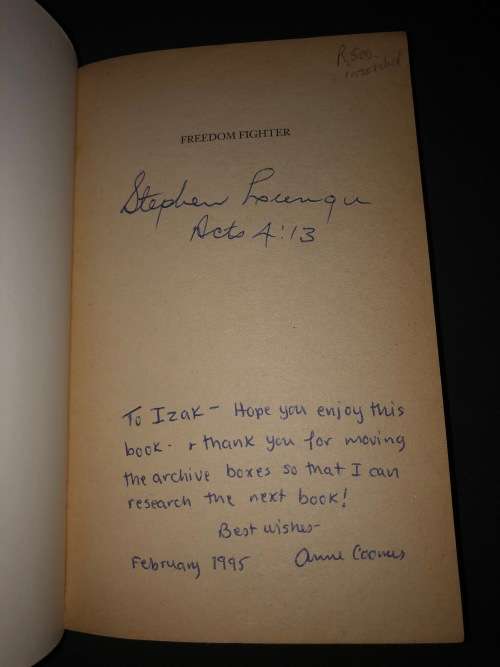 R500
inscribed
FREEDOM FIGHTER
Stephen Lungu
Acts 4:13
To Izak - Hope you enjoy this
book - + thank you for moving
the archive boxes so that I can
research the next book!
Best wishes -
February 1995 Anne Coomes